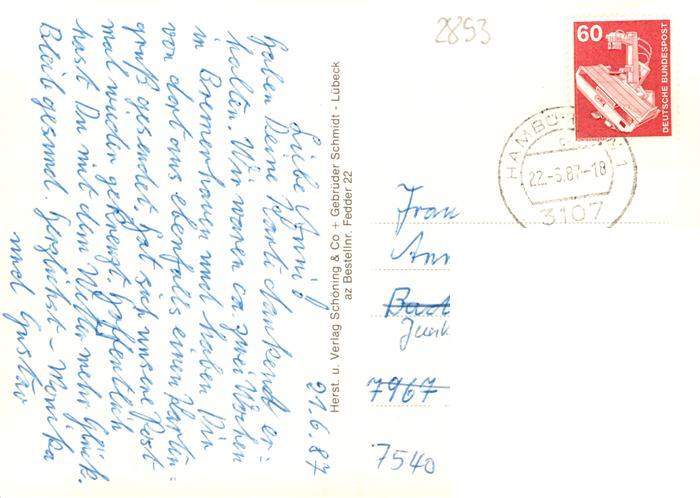 21.6.87
Liebe Anni,
haben Deine Karte dankend er=
halten. Wir waren ca. zwei Wochen
in Bremerhaven und haben Dir
von dort aus ebenfalls einen Karten=
gruß gesendet. Hat sich unsere Post
mal wieder gekreuzt. Hoffentlich
hast Du mit dem Wetter mehr Glück.
Bleib gesund. Herzlichst – Monika
und Gustav
Herst. u. Verlag Schöning & Co + Gebrüder Schmidt - Lübeck
az Bestellnr. Fedder 22
2893
60
DEUTSCHE BUNDESPOST
22.-6.87-18
3107
Frau
Ann
Bad
Junk
7967
7540